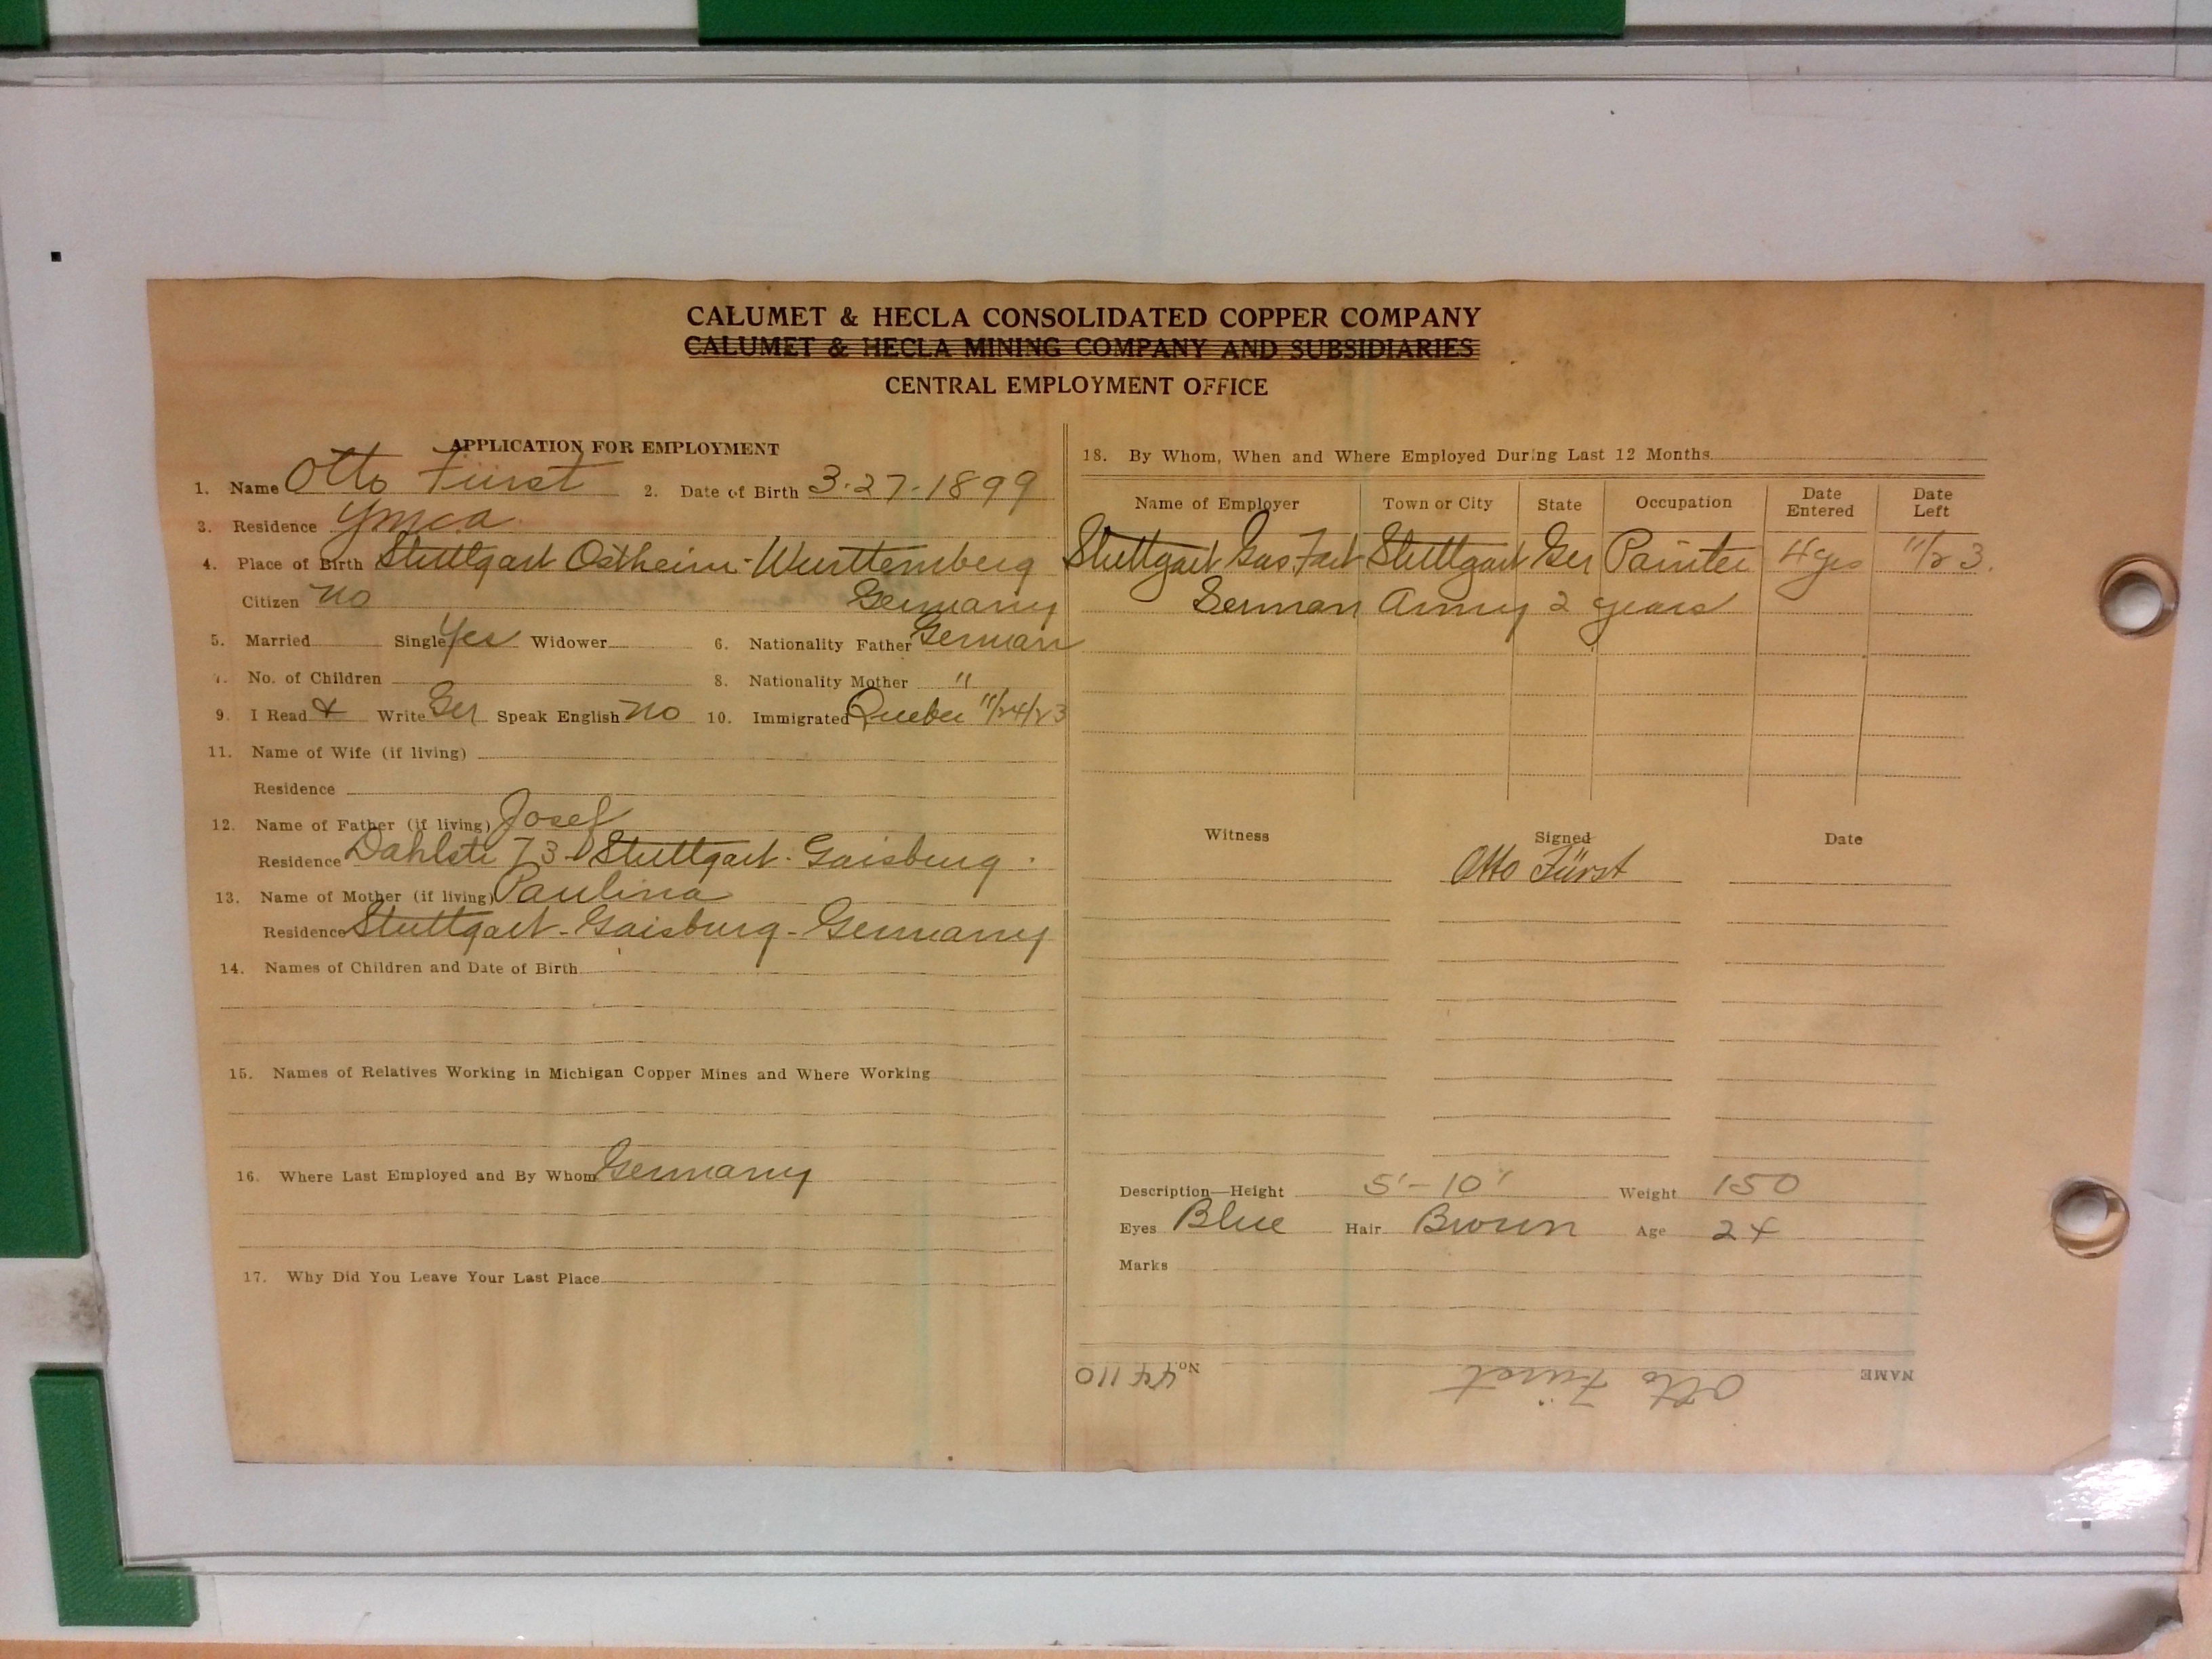 CALUMET & HECLA CONSOLIDATED COPPER COMPANY
CALUMET & HECLA MINING COMPANY AND SUBSIDIARIES
CENTRAL EMPLOYMENT OFFICE
APPLICATION FOR EMPLOYMENT
1. Name Otto Fürst 2. Date of Birth 3-27-1899
3. Residence YMCA
4. Place of Birth Stuttgart Ostheim-Wurttemberg
Citizen no Germany
5. Married Single Yes Widower 6. Nationality Father German
7. No. of Children 8. Nationality Mother "
9. I Read & Write Ger Speak English no 10. Immigrated Quebec 11/24/23
11. Name of Wife (if living)
Residence
12. Name of Father (if living) Josef
Residence 73 Stuttgart-Gaisburg.
13. Name of Mother (if living) Paulina
Residence Stuttgart-Gaisburg-Germany
14. Names of Children and Date of Birth
15. Names of Relatives Working in Michigan Copper Mines and Where Working
16. Where Last Employed and By Whom Germany
17. Why Did You Leave Your Last Place
18. By Whom, When and Where Employed During Last 12 Months
Name of Employer Town or City State Occupation Date Entered Date Left
Stuttgart Gas Stuttgart Ger Painter 4 yrs 11/23.
German Army 2 years
Witness Signed Date
Otto Fürst
Description—Height 5'-10" Weight 150
Eyes Blue Hair Brown Age 24
Marks
NAME Otto Fürst No. 44110